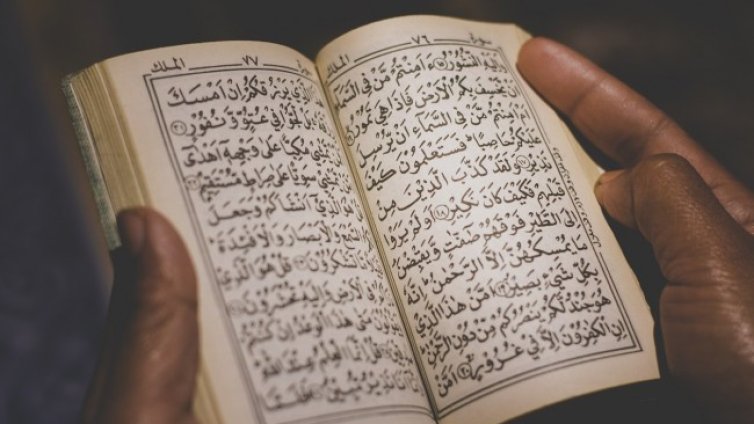 سورة ٧٦ الملك
وَاِلَيْهِ النُّشُوْرُ ١٥ ءَاَمِنْتُمْ مَّنْ فِي السَّمَآءِ
اَنْ يَّخْسِفَ بِكُمُ الْاَرْضَ فَاِذَا هِيَ تَمُوْرُ
اَمْ اَمِنْتُمْ مَّنْ فِي السَّمَآءِ اَنْ يُّرْسِلَ
عَلَيْكُمْ حَاصِبًا فَسَتَعْلَمُوْنَ كَيْفَ
نَذِيْرِ ١٧ وَلَقَدْ كَذَّبَ الَّذِيْنَ مِنْ
قَبْلِهِمْ فَكَيْفَ كَانَ نَكِيْرِ ١٨ اَوَلَمْ يَرَوْا
اِلَى الطَّيْرِ فَوْقَهُمْ صٰٓفّٰتٍ وَّيَقْبِضْنَ
مَا يُمْسِكُهُنَّ اِلَّا الرَّحْمٰنُ اِنَّهٗ
بِكُلِّ شَيْءٍ بَصِيْرٌ ١٩ اَمَّنْ هٰذَا الَّذِيْ
هُوَ جُنْدٌ لَّكُمْ يَنْصُرُكُمْ مِّنْ دُوْنِ الرَّحْمٰنِ
اِنِ الْكٰفِرُوْنَ اِلَّا فِيْ غُرُوْرٍ ٢٠ اَمَّنْ
٧٧ الملك
الَّذِيْ يَرْزُقُكُمْ اِنْ اَمْسَكَ
لَّجُّوْا فِيْ عُتُوٍّ وَّنُفُوْرٍ ٢١
مُكِبًّا عَلٰى وَجْهِهٖٓ اَهْدٰٓى
يَّمْشِيْ سَوِيًّا عَلٰى صِرَاطٍ مُّسْتَقِيْمٍ ٢٢
هُوَ الَّذِيْٓ اَنْشَاَكُمْ وَجَعَلَ
السَّمْعَ وَالْاَبْصَارَ وَالْاَفْئِدَةَ
تَشْكُرُوْنَ ٢٣ قُلْ هُوَ الَّذِيْ
فِي الْاَرْضِ وَاِلَيْهِ تُحْشَرُوْنَ ٢٤
مَتٰى هٰذَا الْوَعْدُ اِنْ كُنْتُمْ
قُلْ اِنَّمَا الْعِلْمُ عِنْدَ اللّٰهِ
اَنَا نَذِيْرٌ مُّبِيْنٌ ٢٦ فَلَمَّا